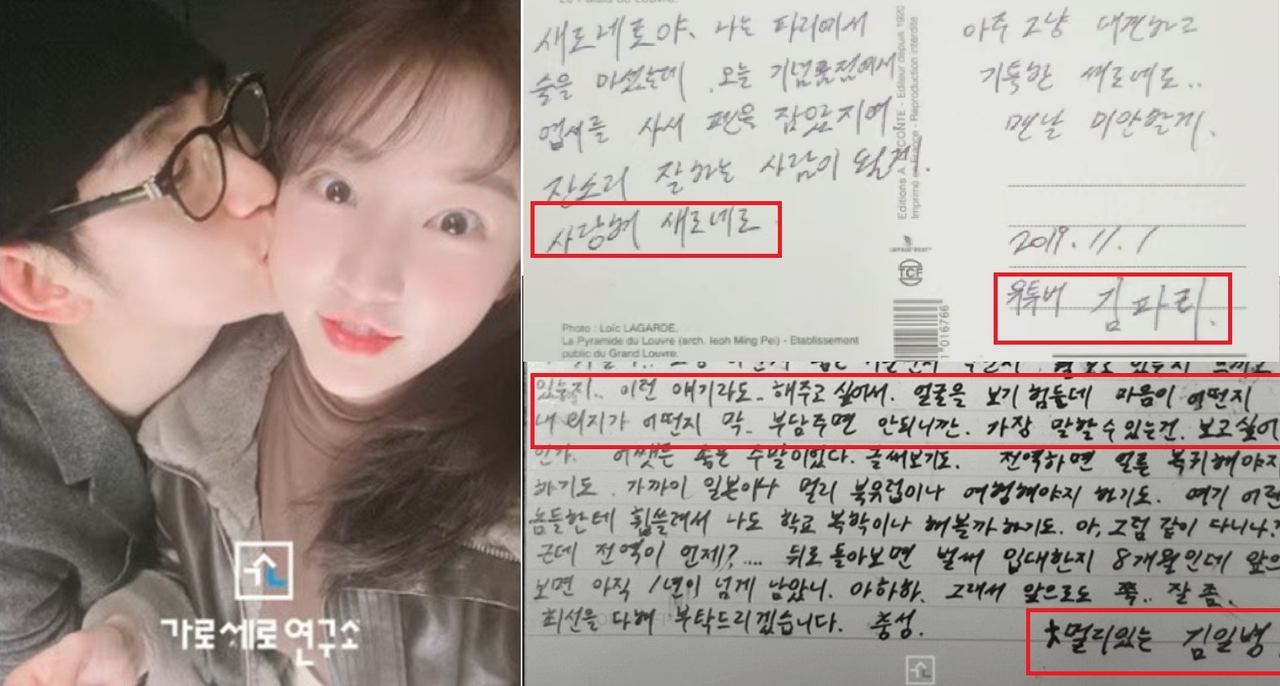 가로세로연구소
Le Palais du Louvre.
새로네로야. 나는 파리에서
술을 마셨는데. 오늘 기념품점에서
엽서를 사서 펜을 잡았지여.
잔소리 잘하는 사람이 될게.
사랑해 새로네로
Photo : Loïc LAGARDE.
La Pyramide du Louvre (arch. Ieoh Ming Pei) - Etablissement
public du Grand Louvre.
Editeur depuis 1920
Reproduction interdite
TCF
1016766
아주 그냥 대견하고
기특한 새로네로..
맨날 미안할게.
2019.11.1
유투버 김파리.
있는지.. 이런 얘기라도.. 해주고 싶어서. 얼굴을 보기 힘든데 마음이 어떤지
내 의지가 어떤지 막.. 부담주면 안되니깐. 가장 말할 수 있는건. 보고싶어
인가. 어쨌든 좋은 주말이있다. 글써보기도. 전역하면 얼른 복귀해야지
하기도. 가까이 일본이나 멀리 북유럽이나 여행해야지 하기도. 여기 어린
놈들한테 휩쓸려서 나도 학교 복학이나 해볼까 하기도. 아, 그럼 같이 다니나?
근데 전역이 언제?.... 뒤로 돌아보면 벌써 입대한지 8개월인데 앞으
보면 아직 1년이 넘게 남았니. 아하하. 그래서 앞으로도 쭉.. 잘 좀.
최선을 다해 부탁드리겠습니다. 충성.
멀리있는 김일병.